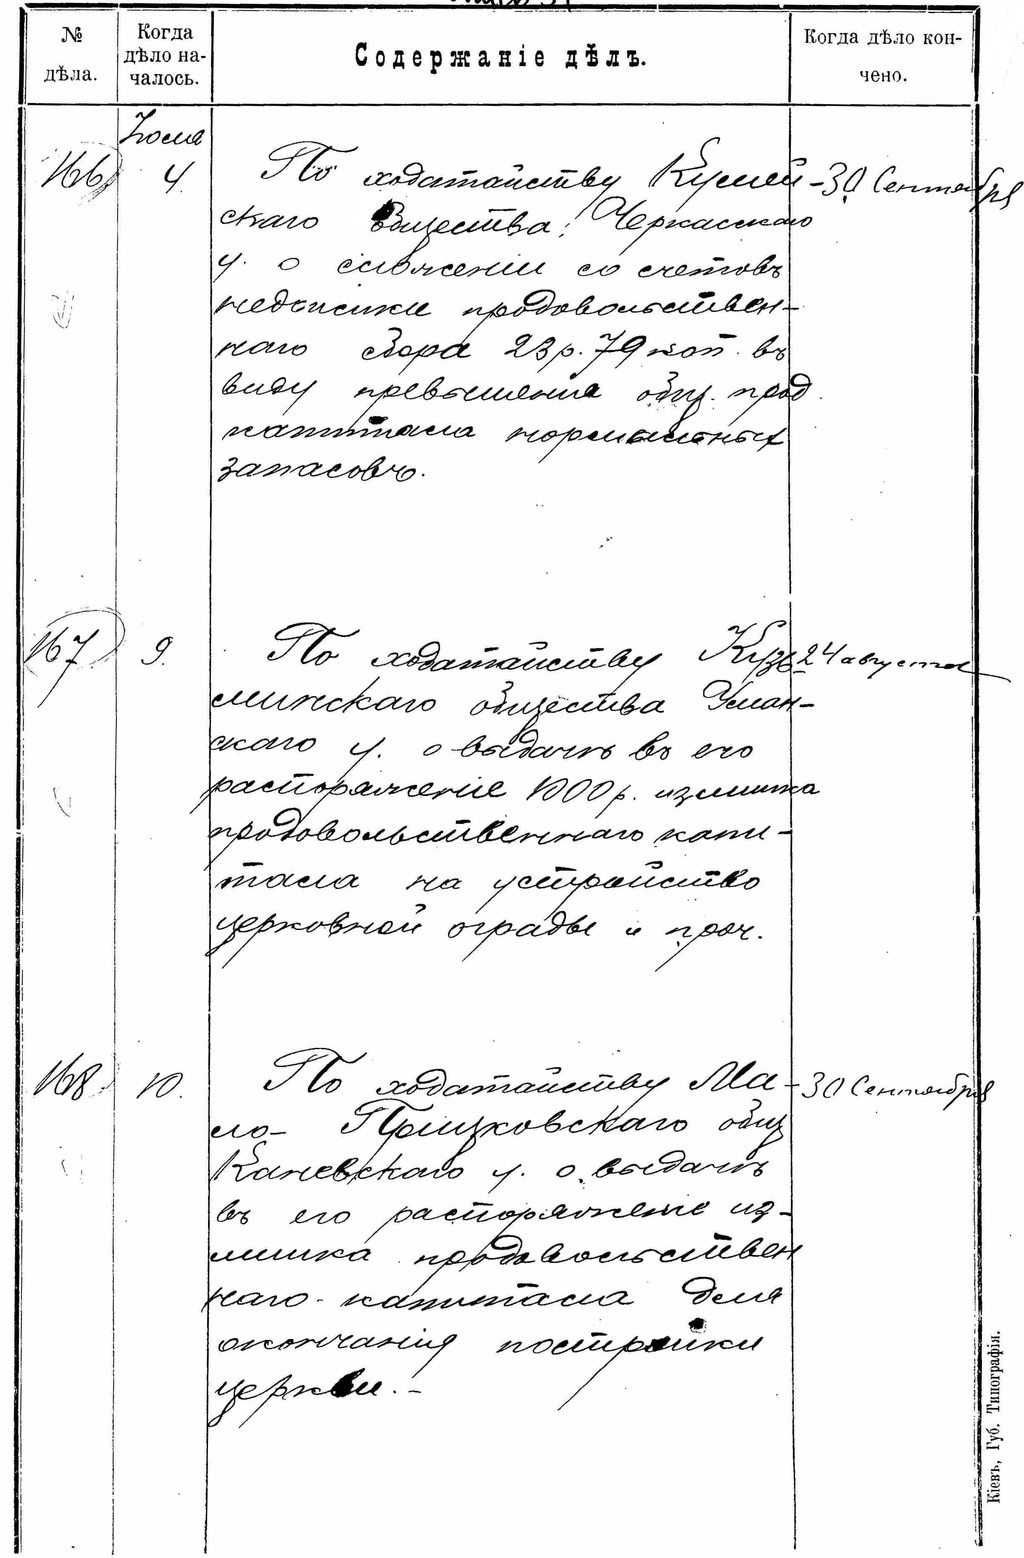 № дѣла.
Когда дѣло началось.
Содержаніе дѣлъ.
Когда дѣло кончено.
Іюля
166 4. По ходатайству Кумей- 30 Сентября
скаго общества, Черкасскаго
у. о сложеніи со счетовъ
недоимки продовольствен-
наго сбора 23 р. 79 коп. въ
виду превышенія общ. прод.
капитала нормальныхъ
запасовъ.
167 9. По ходатайству Кузь- 24 августа
минскаго общества Уман-
скаго у. о выдачѣ въ его
распоряженіе 1000 р. излишка
продовольственнаго капи-
тала на устройство
церковной ограды и проч.
168 10. По ходатайству Ма- 30 Сентября
ло- Прицковскаго общ
Каневскаго у. о выдачѣ
въ его распоряженіе из-
лишка продовольствен
наго капитала для
окончанія постройки
церкви. -
Кіевъ, Губ. Типографія.